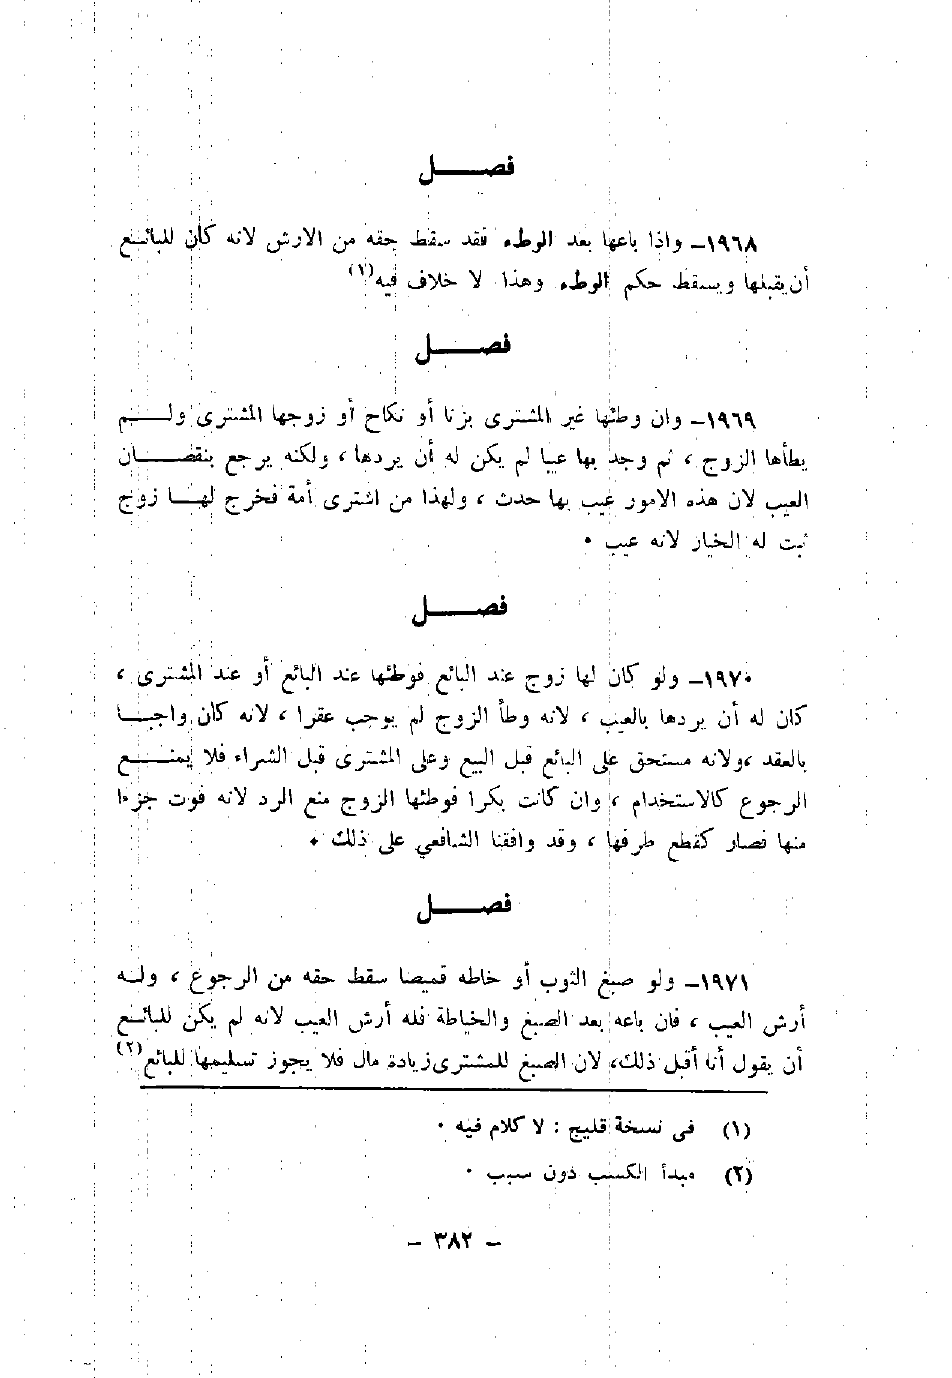 فصـــــل
١٩٦٨ـ واذا باعها بعد الوطء فقد سقط حقه من الارش لانه كان للبائــع
أن يقبلها ويسقط حكم الوطء وهذا لا خلاف فيه(١)
فصـــــل
١٩٦٩ـ وان وطئها غير المشترى بزنا أو نكاح أو زوجها المشترى ولـــم
يطأها الزوج ، ثم وجد بها عيبا لم يكن له أن يردها ، ولكنه يرجع بنقصــان
العيب لان هذه الامور عيب بها حدث ، ولهذا من اشترى أمة فخرج لهــا زوج
ثبت له الخيار لانه عيب ٠
فصـــــل
١٩٧٠ـ ولو كان لها زوج عند البائع فوطئها عند البائع أو عند المشترى ،
كان له أن يردها بالعيب ، لانه وطأ الزوج لم يوجب عقرا ، لانه كان واجبــا
بالعقد ،ولانه مستحق على البائع قبل البيع وعلى المشترى قبل الشراء فلا يمنـــع
الرجوع كالاستخدام ، وان كانت بكرا فوطئها الزوج منع الرد لانه فوت جزءا
منها فصار كقطع طرفها ، وقد وافقنا الشافعي على ذلك ٠
فصـــــل
١٩٧١ـ ولو صبغ الثوب أو خاطه قميصا سقط حقه من الرجوع ، ولــه
أرش العيب ، فان باعه بعد الصبغ والخياطة فله أرش العيب لانه لم يكن للبائــع
أن يقول أنا أقبل ذلك، لان الصبغ للمشترى زيادة مال فلا يجوز تسليمها للبائع(٢)
(١) فى نسخة قليج : لا كلام فيه ٠
(٢) مبدأ الكسب دون سبب ٠
ـ ٣٨٢ ـ